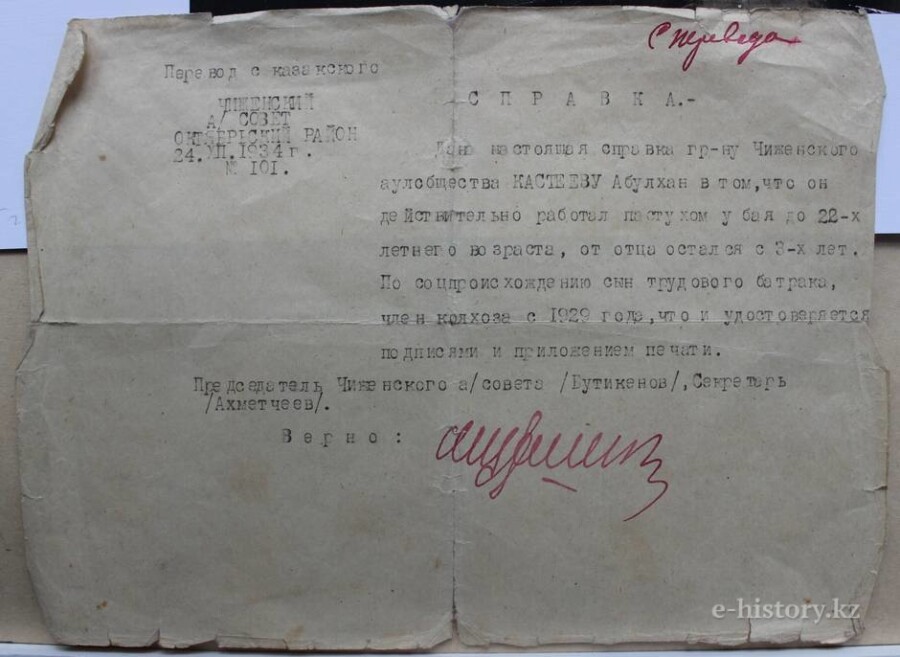 С перевода
Перевод с казакского
ЧИЖЕНСКИЙ
А/ СОВЕТ
ОКТЯБРЬСКИЙ РАЙОН
24. VII. 1934 г.
№ 101.
С П Р А В К А.-
Дана настоящая справка гр-ну Чиженского
аулобщества КАСТЕЕВУ Абулхан в том, что он
действительно работал пастухом у бая до 22-х
летнего возраста, от отца остался с 3-х лет.
По соцпроисхождению сын трудового батрака,
член колхоза с 1929 года, что и удостоверяется
подписями и приложением печати.
Председатель Чиженского а/совета /Бутикенов/, Секретарь
/Ахметчеев/.
В е р н о :
e-history.kz